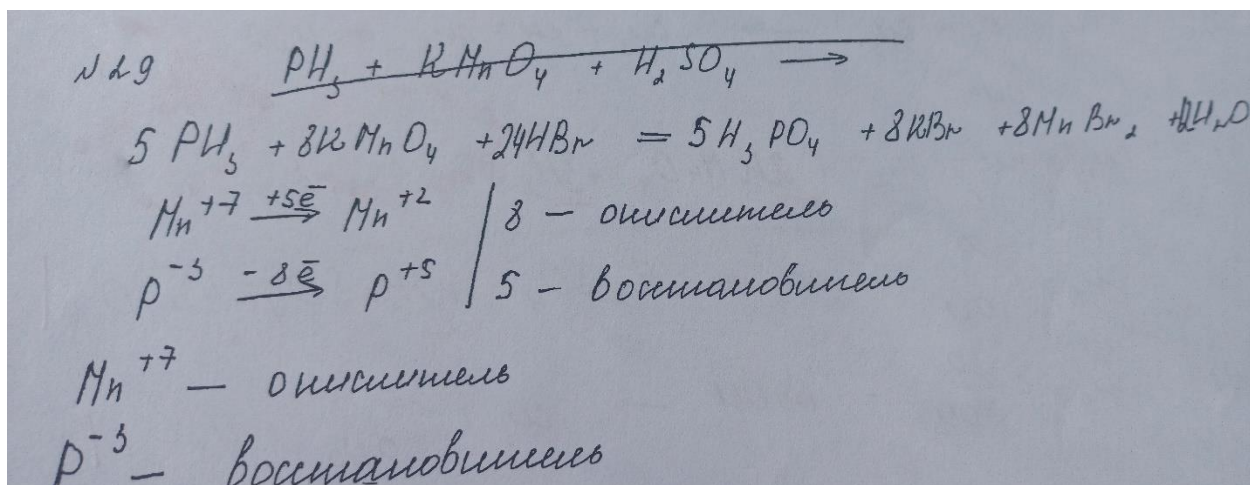 №29 PH₃ + KMnO₄ + H₂SO₄ →
5PH₃ + 8KMnO₄ + 24HBr = 5H₃PO₄ + 8KBr + 8MnBr₂ + 12H₂O
Mn⁺⁷ +5ē → Mn⁺² | 8 – окислитель
P⁻³ -8ē → P⁺⁵ | 5 – восстановитель
Mn⁺⁷ – окислитель
P⁻³ – восстановитель